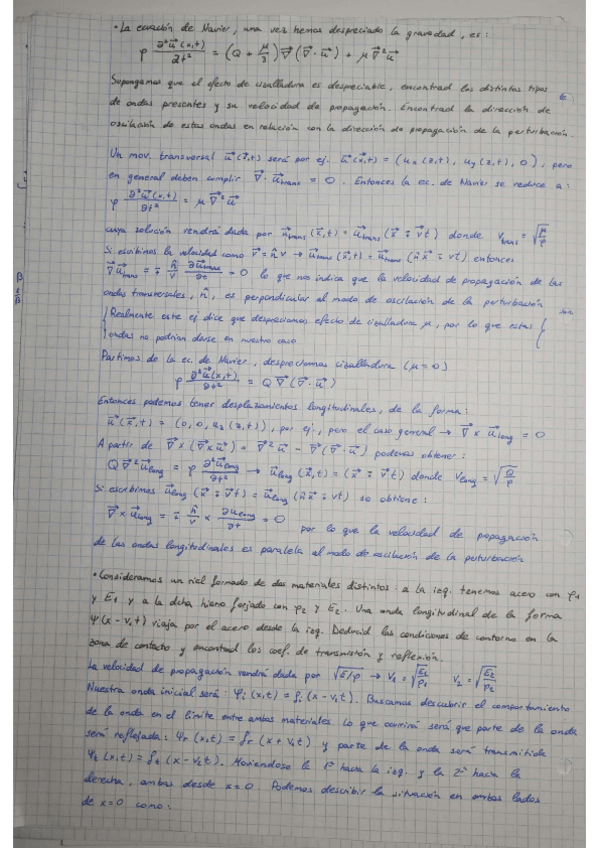 • La ecuación de Navier, una vez hemos despreciado la gravedad, es:
ρ ∂²u⃗(x,t)/∂t² = (Q + μ/3) ∇⃗(∇⃗·u⃗) + μ∇⃗²u⃗
Supongamos que el efecto de cizalladura es despreciable, encontrad los distintos tipos
de ondas presentes y su velocidad de propagación. Encontrad la dirección de
oscilación de estas ondas en relación con la dirección de propagación de la perturbación.
Un mov. transversal u⃗(x⃗,t) será por ej. u⃗(x⃗,t) = (ux(z,t), uy(z,t), 0), pero
en general deben cumplir ∇⃗·u⃗trans = 0. Entonces la ec. de Navier se reduce a:
ρ ∂²u⃗(x,t)/∂t² = μ∇⃗²u⃗
cuya solución vendrá dada por u⃗trans(x⃗,t) = u⃗trans(x⃗ ∓ v⃗t) donde vtrans = √(μ/ρ)
Si escribimos la velocidad como v⃗ = n̂v → u⃗trans(x⃗,t) = u⃗trans(n̂x⃗ ∓ vt) entonces
∇⃗u⃗trans = ∓ n̂/v ∂u⃗trans/∂t = 0 lo que nos indica que la velocidad de propagación de las
ondas transversales, n̂, es perpendicular al modo de oscilación de la perturbación
Realmente este ej dice que despreciamos efecto de cizalladura μ, por lo que estas
ondas no podrían darse en nuestro caso
Partimos de la ec. de Navier, despreciamos cizalladura (μ=0)
ρ ∂²u⃗(x,t)/∂t² = Q∇⃗(∇⃗·u⃗)
Entonces podemos tener desplazamientos longitudinales, de la forma:
u⃗(x⃗,t) = (0,0,uz(z,t)), por ej., pero el caso general → ∇⃗×u⃗long = 0
A partir de ∇⃗×(∇⃗×u⃗) = ∇⃗²u⃗ - ∇⃗(∇⃗·u⃗) podemos obtener:
Q∇⃗²u⃗long = ρ ∂²u⃗long/∂t² → u⃗long(x⃗,t) = (x⃗ ∓ v⃗t) donde vlong = √(Q/ρ)
Si escribimos u⃗long(x⃗ ∓ v⃗t) = u⃗long(n̂x⃗ ∓ vt) se obtiene:
∇⃗×u⃗long = ∓ n̂/v × ∂u⃗long/∂t = 0 por lo que la velocidad de propagación
de las ondas longitudinales es paralela al modo de oscilación de la perturbación
• Consideramos un riel formado de dos materiales distintos: a la izq. tenemos acero con ρ1
y E1 y a la dcha hierro forjado con ρ2 y E2. Una onda longitudinal de la forma
Ψ(x-v1t) viaja por el acero desde la izq. Deducid las condiciones de contorno en la
zona de contacto y encontrad los coef. de transmisión y reflexión.
La velocidad de propagación vendrá dada por √(E/ρ) → v1 = √(E1/ρ1) v2 = √(E2/ρ2)
Nuestra onda inicial será: Ψi(x,t) = fi(x-v1t). Buscamos descubrir el comportamiento
de la onda en el límite entre ambos materiales. Lo que ocurrirá será que parte de la onda
será reflejada: Ψr(x,t) = fr(x+v1t) y parte de la onda será transmitida
Ψt(x,t) = ft(x-v2t). Moviéndose la 1ª hacia la izq. y la 2ª hacia la
derecha, ambas desde x=0. Podemos describir la situación en ambos lados
de x=0 como: